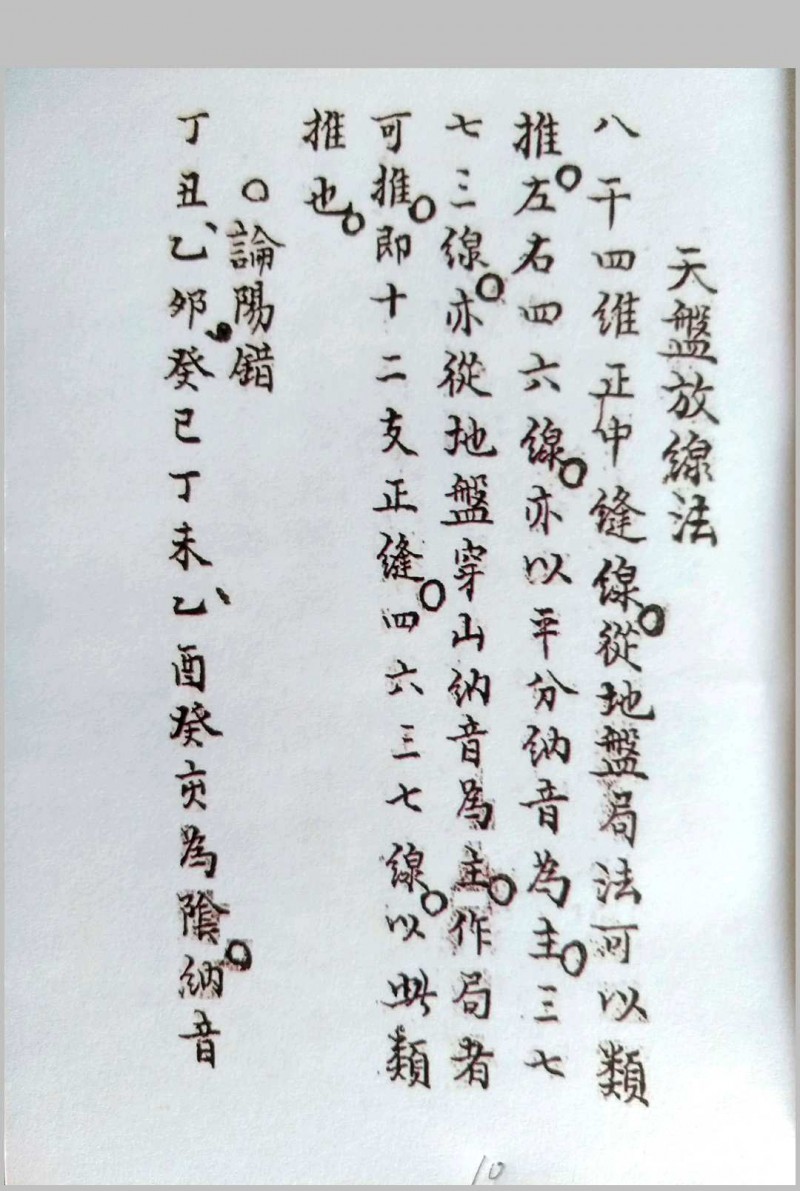 天盤放線法
八干四維正中縫線。從地盤局法可以類
推。左右四六線。亦以平分納音為主。三七
七三線。亦從地盤穿山納音為主。作局者
可推。即十二支正縫。四六三七線。以此類
推也。
○論陽錯
丁丑、乙卯、癸巳丁未、乙酉癸亥為陰。納音
10